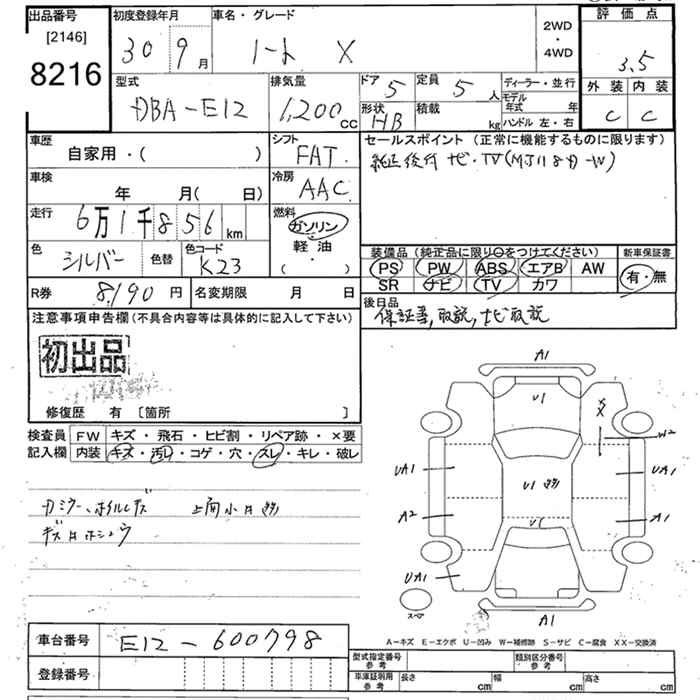 出品番号 初度登録年月 車名・グレード 2WD・4WD 評価点
[2146]
8216
30 9月 ノート X 3.5
外装 内装
C C
型式 排気量 ドア 定員 ディーラー・並行
DBA-E12 1,200cc 5 5人 モデル年式 年
形状 積載 ハンドル 左・右
HB kg
車歴 シフト セールスポイント(正常に機能するものに限ります)
自家用・( ) FAT 純正後付ナビ・TV(MJ118D-W)
車検 冷房
年 月( 日) AAC
走行 燃料
6万1千856km ガソリン・軽油・( )
色 色替 色コード 装備品(純正品に限り○をつけてください) 新車保証書
シルバー K23 PS PW ABS エアB AW 有・無
SR ナビ TV カワ
R券 8,190円 名変期限 月 日 後日品
保証書,取説,ナビ取説
注意事項申告欄(不具合内容等は具体的に記入して下さい)
初出品
修復歴 有 [箇所 ]
検査員 FW キズ・飛石・ヒビ割・リペア跡・×要
記入欄 内装 キズ・汚レ・コゲ・穴・スレ・キレ・破レ
A1
U1
X
W2
UA1 U1 UA1
A2 A1
UA1
スペア
A1
A-キズ E-エクボ U-凹み W-補修跡 S-サビ C-腐食 XX-交換済
車台番号 E12-600798
登録番号
型式指定番号 参考 類別区分番号 参考
車庫証明用 参考 長さ cm 幅 cm 高さ cm